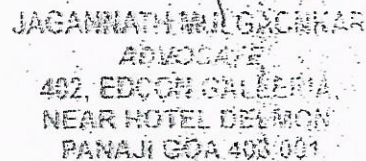 JAGANNATH
ADVOCATE
402, EDCON GALLERIA,
NEAR HOTEL DELMON
PANAJI GOA 403 001